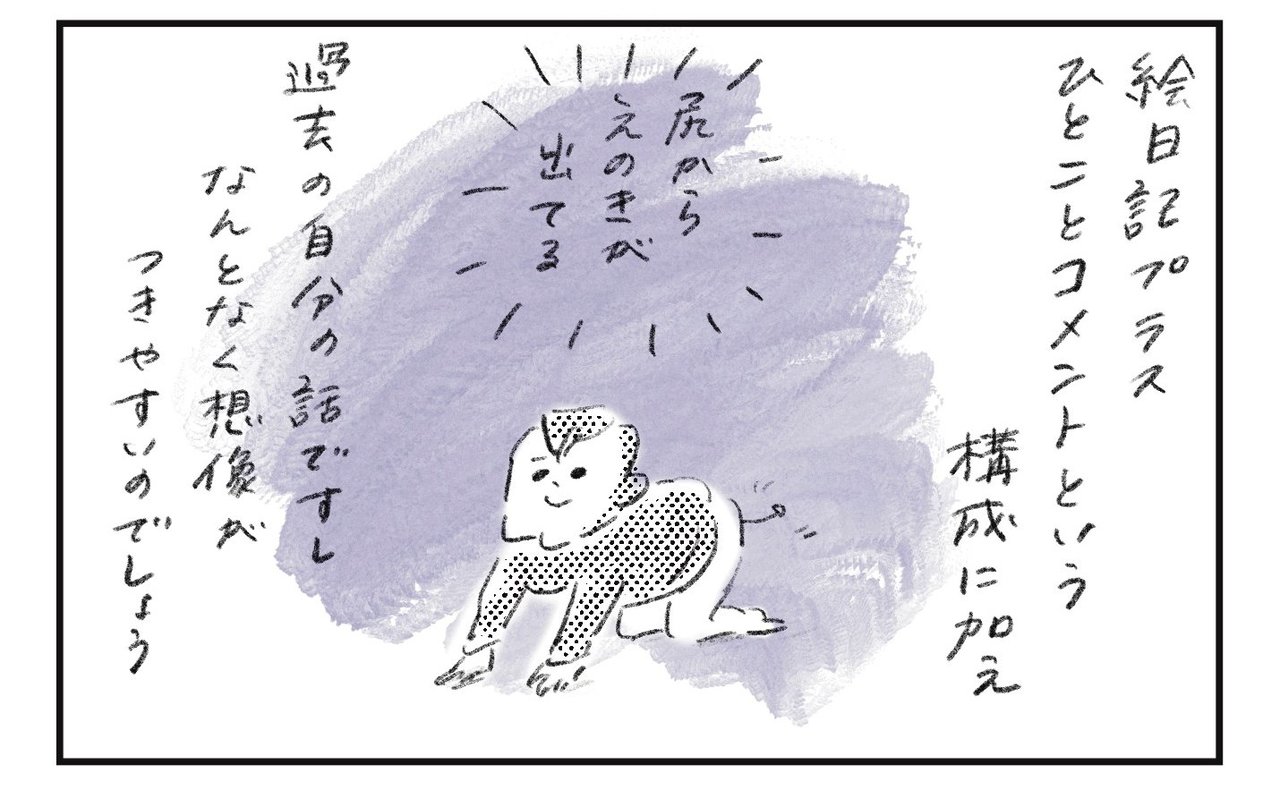 絵日記プラス
ひとことコメントという
構成に加え
尻から
えのきが
出てる
過去の自分の話ですし
なんとなく想像が
つきやすいのでしょう